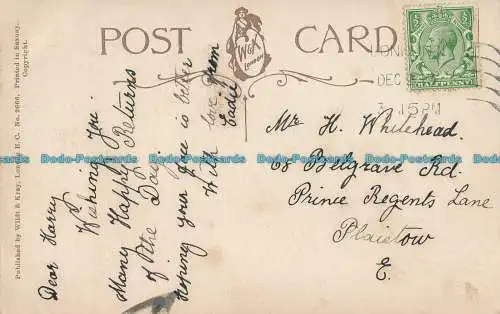 POST CARD
W&K
LONDON
Published by Wildt & Kray, London, E.C. No. 2666. Printed in Saxony.
Copyright.
Dear Harry
Wishing You
Many Happy Returns
of the Day.
Hoping your face is better
With love from
Eadie
DEC
15 PM
Mr H. Whitehead.
68 Belgrave Rd.
Prince Regents Lane
Plaistow
E.
Dodo-Postcards Dodo-Postcards Dodo-Postcards Dodo-Postcards Dodo-Postcards